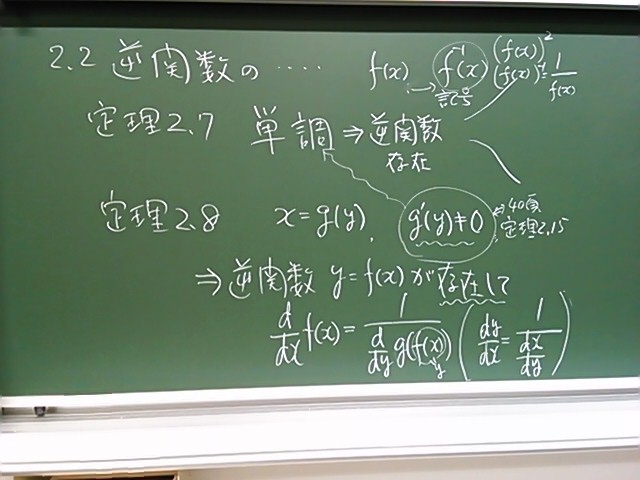 2.2 逆関数の ‥‥ f(x) f⁻¹(x) (f(x))²
記号 (f(x))⁻¹ = 1/f(x)
定理2.7 単調 ⇒ 逆関数
存在
定理2.8 x = g(y), g'(y) ≠ 0 ⇐ 40頁
定理2.15
⇒ 逆関数 y = f(x) が存在して
d/dx f(x) = 1/(d/dy g(f(x))) (dy/dx = 1/(dx/dy))
y